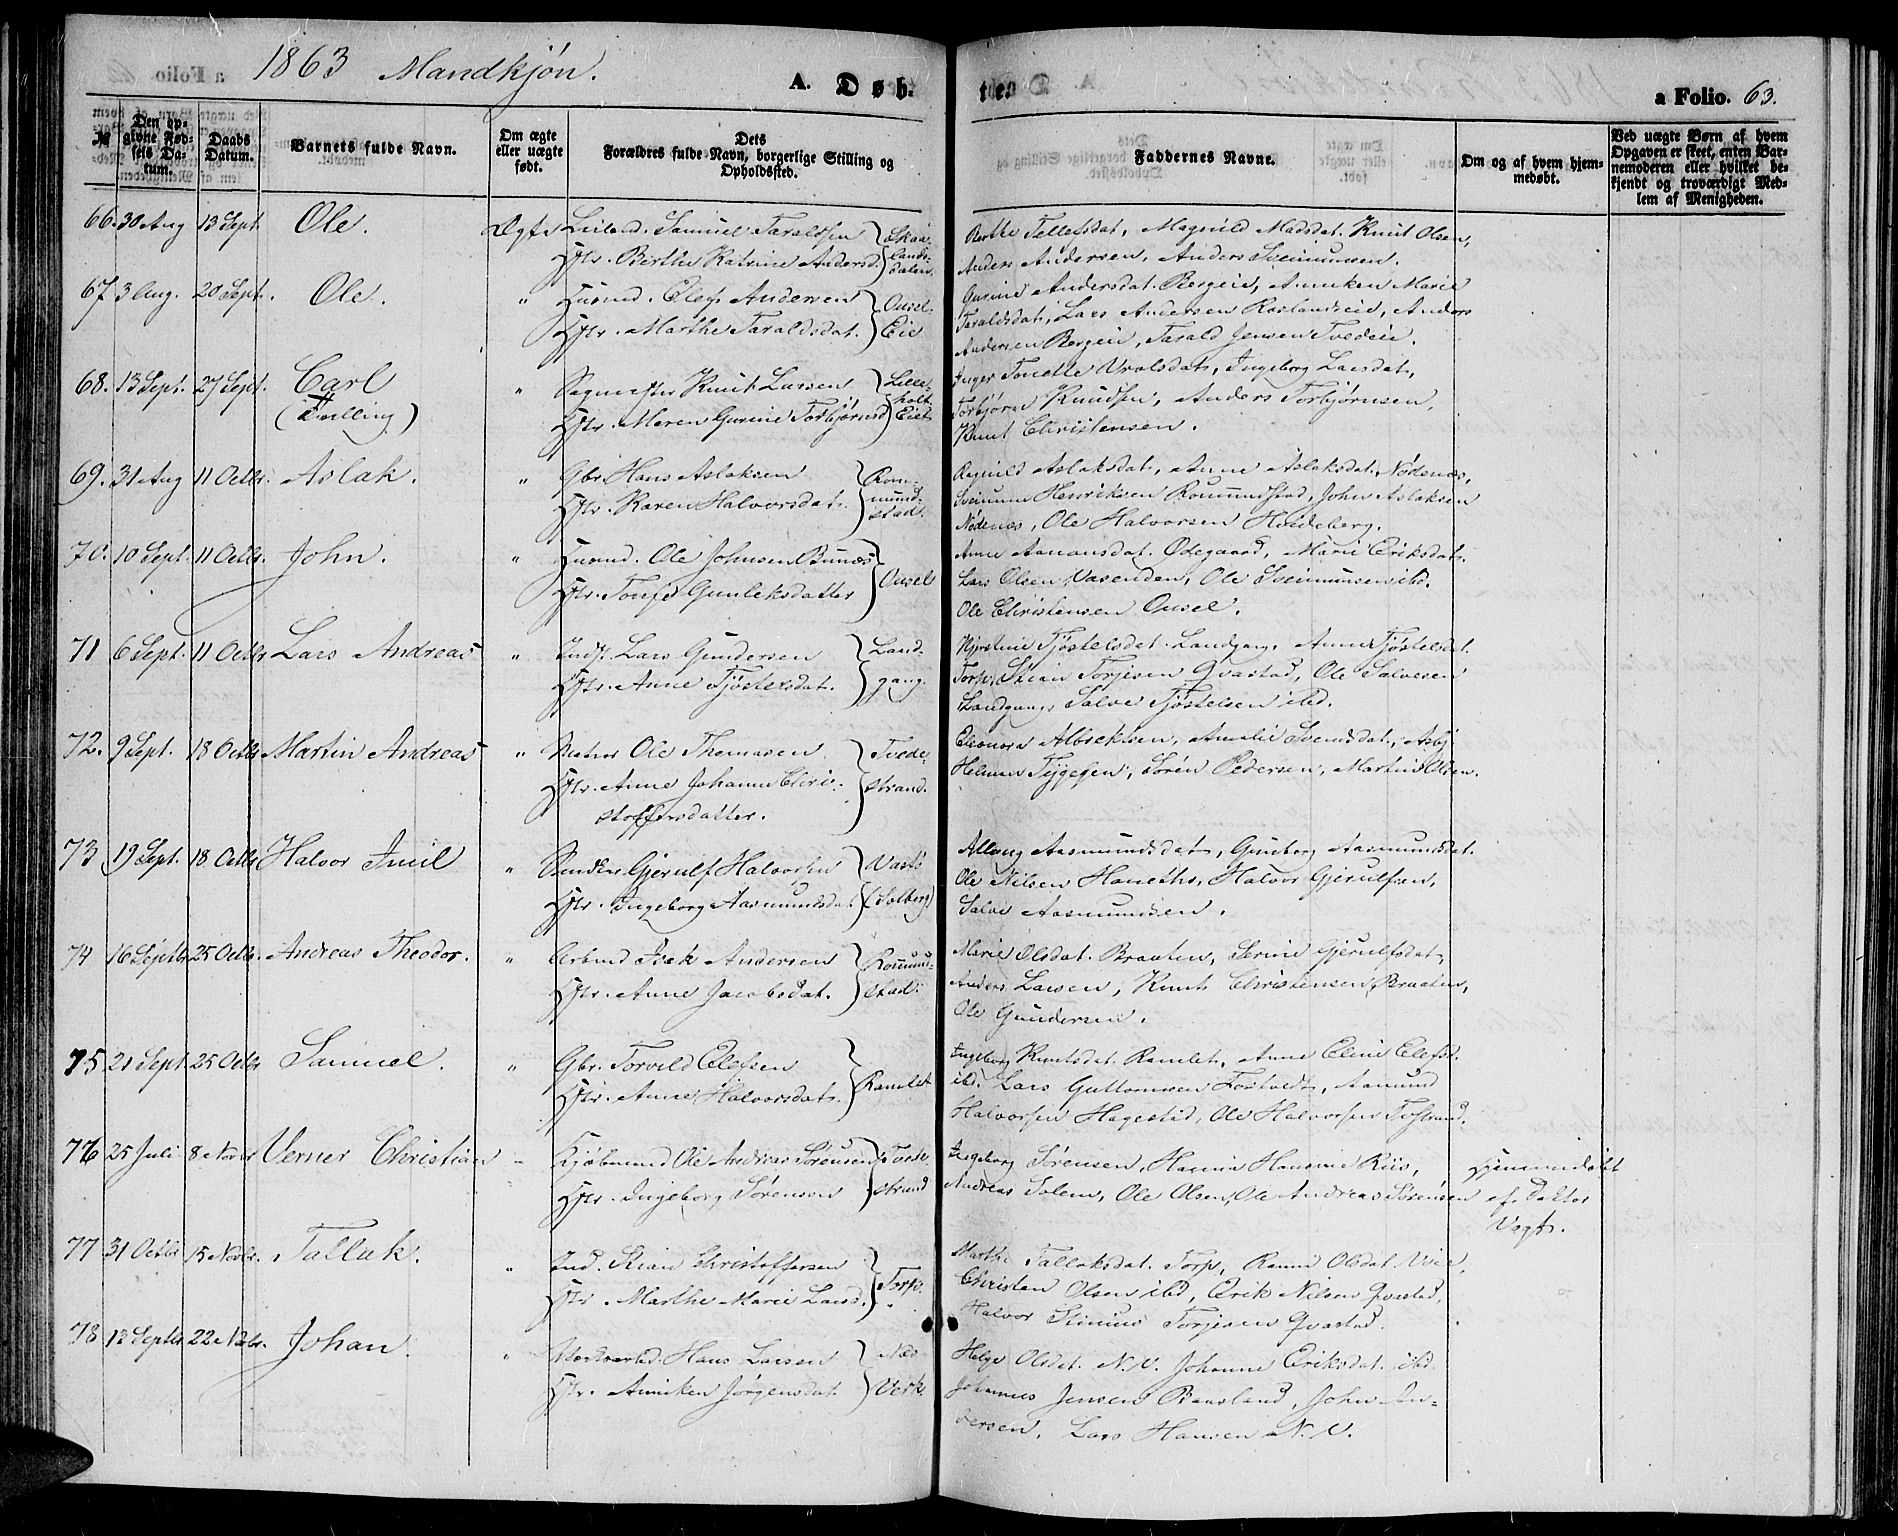 1863 Mandkjön.
A. Døb-
te.
a Folio. 63.
№
Den op-
givne Fød-
sels Da-
tum.
Daabs
Datum.
Barnets fulde Navn.
Om ægte
eller uægte
født.
Dets
Forældres fulde Navn, borgerlige Stilling og
Opholdssted.
Faddernes Navne.
Om og af hvem hjem-
medøbt.
Ved uægte Børn af hvem
Opgaven er skeet, enten Bar-
nemoderen eller hvilket be-
kjendt og troværdigt Med-
lem af Menigheden.
66. 30 Aug 13 Sept. Ole. Ægte Leilænd. Samuel Taraldsen
Hstr. Berthe Katrine Andersd. Skaa-
lands-
dalen.
Berthe Tellefsdat, Magnild Madsdat. Knut Olsen,
Anders Andersen, Anders Sveinunsen.
67. 3 Aug. 20 Sept. Ole. " Husmd. Olef Andersen
Hstr. Marthe Taraldsdat. Ousel-
Eie
Gurine Andersdat. Bergeie, Anniken Marie
Taraldsdat, Lars Andersen Roslandseie, Anders
Andersen Bergeie, Tarald Jensen Tvedeie.
68. 13 Sept. 27 Sept. Carl
(Tvilling) " Sagmester Knut Larsen
Hstr. Maren Gurine Torbjørnsd Lille-
holt-
Eiet
Inger Tonette Vrolsdat, Ingeborg Larsdat,
Torbjørn Knudsen, Anders Torbjørnsen,
Knut Christensen.
69. 31 Aug 11 Octbr. Aslak. " Gbr. Hans Aslaksen
Hstr. Karen Halvorsdat. Rom-
mund-
stad.
Ragnild Aslaksdat, Anne Aslaksdat. Nødenæs,
Sveinum Henriksen Rommundstad, John Aslaksen
Nødenæs, Ole Halvorsen Hvideberg.
70. 10 Sept. 11 Octbr. John. " Husmd. Ole Johnsen Bunæs
Hstr. Gunleksdatter Ousel
Anne Aanonsdat. Ødegaard, Marie Eriksdat.
Lars Olsen Vasenden, Ole Sveinunsen ibd.
Ole Christensen Ousel.
71 6 Sept. 11 Octbr Lars Andreas " Indst. Lars Gundersen
Hstr. Anne Tjøstelsdat. Land-
gang.
Kjerstine Tjøstelsdat. Landgang, Anne Tjøstelsdat.
Torp, Stian Torjesen Qvastad, Ole Salvesen
Landgang, Salve Tjøstelsen ibd.
72. 9 Sept. 18 Octbr Martin Andreas " Ole Thomasen
Hstr. Anne Johanne Chri-
stoffersdatter. Tvede-
strand.
Eleonora Albrektsen, Amalie Svendsdat, Asbj
Helman Tygesen, Sören Pedersen, Martin Olsen.
73 19 Sept. 18 Octbr Halvor Imil " Gjerulf Halvorsen
Hstr. Ingeborg Aasmundsdat. Vastö
(Solberg)
Allaug Aasmundsdat, Gunborg Aasmundsdat.
Ole Nilsen Haneths, Halvor Gjerulfsen,
Salve Aasmundsen.
74 16 Septbr 25 Octbr. Andreas Theodor. " Arbmd Isak Andersen
Hstr. Anne Jacobsdat. Romund-
stad.
Marie Olsdat. Braaten, Serine Gjerulfsdat,
Anders Larsen, Knut Christensen Braaten,
Ole Gundersen.
75. 21 Sept. 25 Octbr Samuel. " Gbr. Torvild Olefsen
Hstr. Anne Halvorsdat. Ramlet
Ingeborg Knutsdat. Ramlet, Anne Eline Olefsd.
ibd. Lars Guttormsen Fostvedt, Aamund
Halvorsen Hagestad, Ole Halvorsen
76 25 Juli 8 Novbr Verner Christian – Kjøbmand Ole Andreas Sörensen
Hstr. Ingeborg Sørensen Tvede-
strand
Ingeborg Sørensen, Hansine Riis,
Andreas Solem, Ole Olsen, Ole Andreas Sørensen
Hjemmedøbt
af Doktor
Vogt.
77 31 Octbr 15 Novbr. Tallak. " Ind. Stian Christoffersen
Hstr. Marthe Marie Larsd. Torp.
Marthe Tallaksdat. Torp, Olsdat. Vie,
Christen Olsen ibd, Erik Nilsen Qvastad,
Halvor Torjesen Qvastad.
78 13 Septbr 22 Novbr. Johan. " Hans Larsen
Hstr. Anniken Jørgensdat. Næs
Værk
Helge Olsdat. N.V. Johanne Eriksdat. ibd.
Johannes Jensen Baasland, John An-
dersen, Lars Hansen N.V.